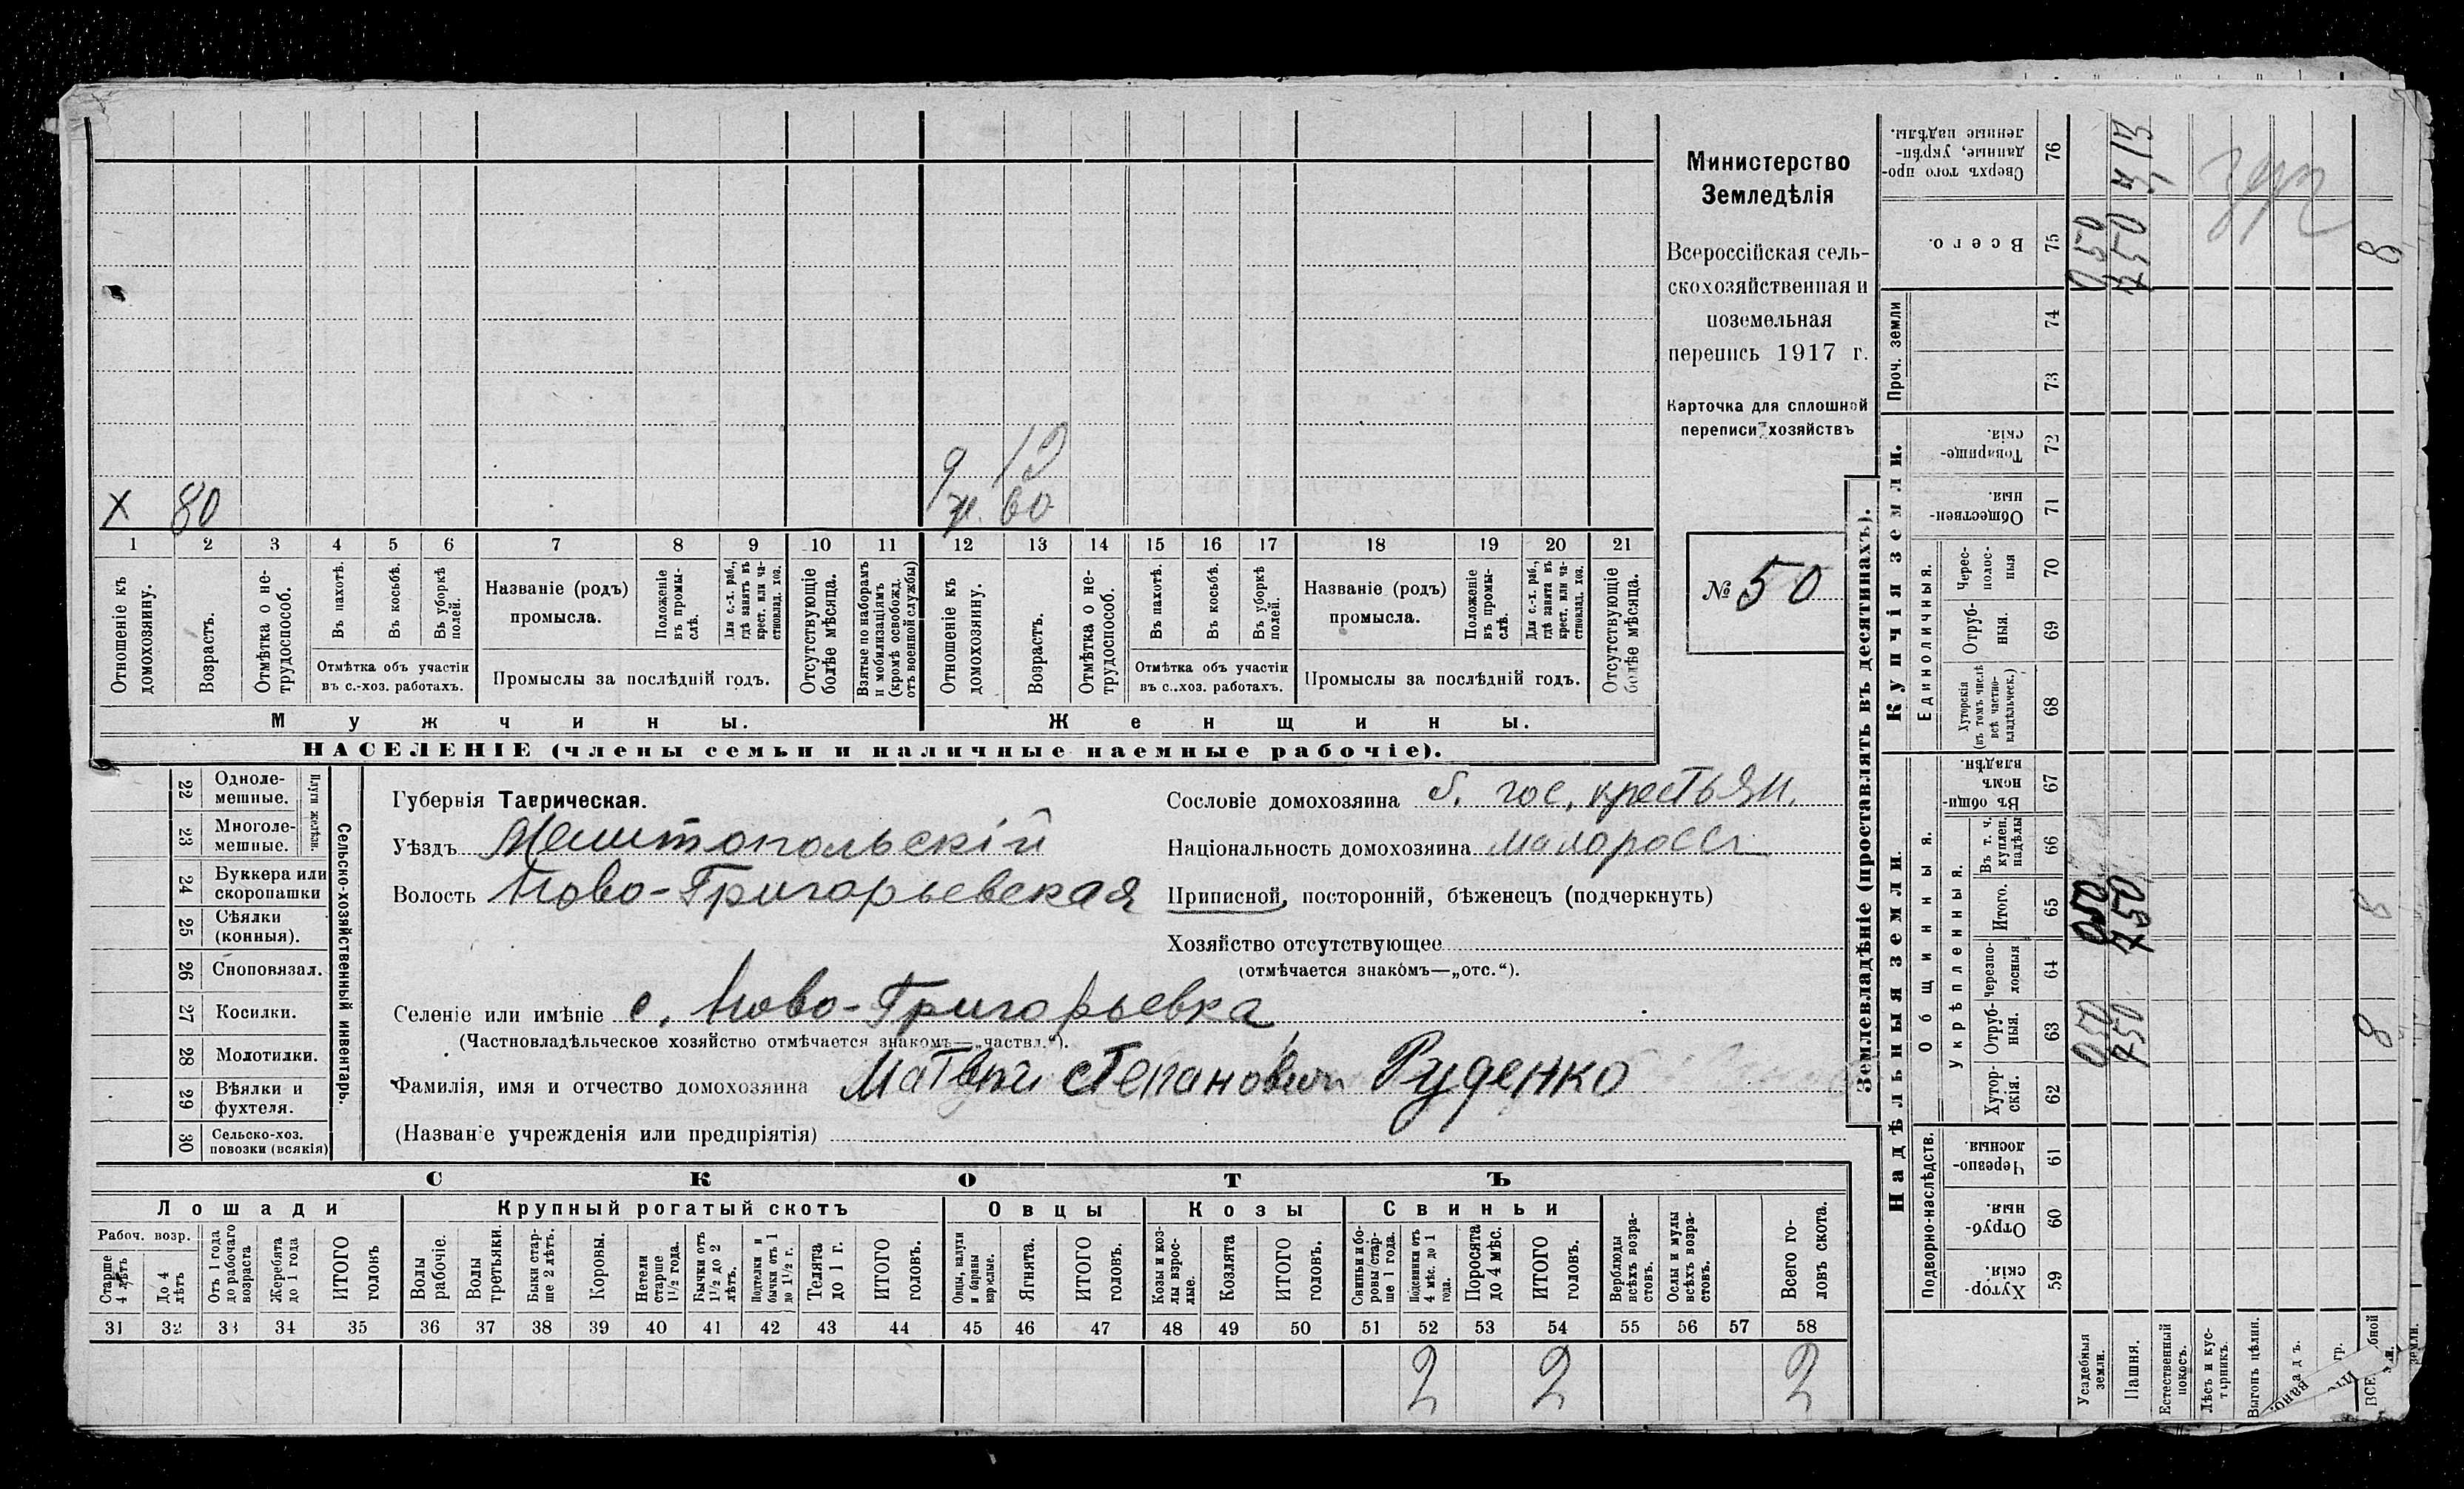 Министерство
Земледѣлія
Всероссійская сель-
скохозяйственная и
поземельная
перепись 1917 г.
Карточка для сплошной
переписи хозяйствъ
№ 50
д 12
х 80 ж. 60
1 2 3 4 5 6 7 8 9 10 11 12 13 14 15 16 17 18 19 20 21
Отношеніе къ домохозяину.
Возрастъ.
Отмѣтка о не-трудоспособ.
Въ пахотѣ.
Въ косьбѣ.
Въ уборкѣ полей.
Отмѣтка объ участіи въ с.-хоз. работахъ.
Названіе (родъ) промысла.
Положеніе въ промы-слѣ.
Для с.-х. раб., гдѣ занятъ въ крест. или ча-стновлад. хоз.
Промыслы за послѣдній годъ.
Отсутствующіе болѣе мѣсяца.
Взятые по наборамъ и мобилизаціямъ (кромѣ освобожд. отъ военной службы)
Отношеніе къ домохозяину.
Возрастъ.
Отмѣтка о не-трудоспособ.
Въ пахотѣ.
Въ косьбѣ.
Въ уборкѣ полей.
Отмѣтка объ участіи въ с..хоз. работахъ.
Названіе (родъ) промысла.
Положеніе въ промы-слѣ.
Для с.-х. раб., гдѣ занята въ крест. или ча-стновлад. хоз.
Промыслы за послѣдній годъ.
Отсутствующіе болѣе мѣсяца.
Мужчины. Женщины.
НАСЕЛЕНІЕ (члены семьи и наличные наемные рабочіе).
Сельско-хозяйственный инвентарь.
Плуги желѣзн.
22 Одноле-мешные.
23 Многоле-мешные.
24 Буккера или скоропашки
25 Сѣялки (конныя).
26 Сноповязал.
27 Косилки.
28 Молотилки.
29 Вѣялки и фухтеля.
30 Сельско-хоз. повозки (всякія)
Губернія Таврическая.
Уѣздъ Мелитопольскій
Волость Ново-Григорьевская
Сословіе домохозяина б. гос. крестьян.
Національность домохозяина малоросс
Приписной, посторонній, бѣженецъ (подчеркнуть)
Хозяйство отсутствующее
(отмѣчается знакомъ—„отс.“).
Селеніе или имѣніе с. Ново-Григорьевка
(Частновладѣльческое хозяйство отмѣчается знакомъ—„частвл.“).
Фамилія, имя и отчество домохозяина Матвѣй Степанович Руденко
(Названіе учрежденія или предпріятія)
СКОТЪ
Лошади Крупный рогатый скотъ Овцы Козы Свиньи
Рабоч. возр.
Старше 4 лѣтъ
До 4 лѣтъ
Отъ 1 года до рабочаго возраста
Жеребята до 1 года
ИТОГО головъ
Волы рабочіе.
Волы третьяки.
Быки стар-ше 2 лѣтъ.
Коровы.
Нетели старше 1½ года.
Бычки отъ 1½ до 2 лѣтъ.
Подтелки и бычки отъ 1 до 1½ г.
Телята до 1 г.
ИТОГО головъ.
Овцы, валухи и бараны взрослые.
Ягнята.
ИТОГО головъ.
Козы и коз-лы взрос-лые.
Козлята
ИТОГО головъ.
Свиньи и бо-ровы стар-ше 1 года.
Подсвинки отъ 4 мѣс. до 1 года.
Поросята до 4 мѣс.
ИТОГО головъ.
Верблюды всѣхъ возра-стовъ.
Ослы и мулы всѣхъ возра-стовъ.
Всего го-ловъ скота.
31 32 33 34 35 36 37 38 39 40 41 42 43 44 45 46 47 48 49 50 51 52 53 54 55 56 57 58
2 2 2
Землевладѣніе (проставлять въ десятинахъ).
Купчія земли.
Надѣльныя земли.
Сверхъ того про-данные, укрѣп-ленные надѣлы. 76
Всего. 75
Проч. земли
74
73
Товарище-скія. 72
Обществен-ныя. 71
Единоличныя.
Черес-полос-ныя 70
Отруб-ныя. 69
Хуторскія (въ томъ числѣ всѣ частно-владѣльческ.) 68
Общинныя.
Въ общин-номъ владѣн. 67
Укрѣпленныя.
Въ т. ч. куплен. надѣлы 66
Итого. 65
Черезпо-лосныя 64
Отруб-ныя. 63
Хутор-скія. 62
Подворно-наслѣдств.
Черезпо-лосныя 61
Отруб-ныя. 60
Хутор-скія. 59
Усадебныя земли. 050 050 050
Пашня. 750 750 750
Естественный покосъ.
Лѣсъ и кус-тарникъ.
Выгонъ цѣлин.
8 8 8